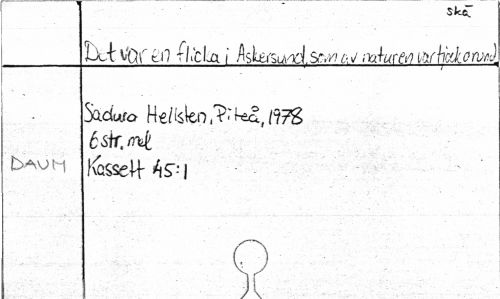 skä
Det var en flicka i Askersund, som av naturen var tjock o rund
Hellsten, Piteå, 1978
6 str, mel
DAUM Kassett 45:1